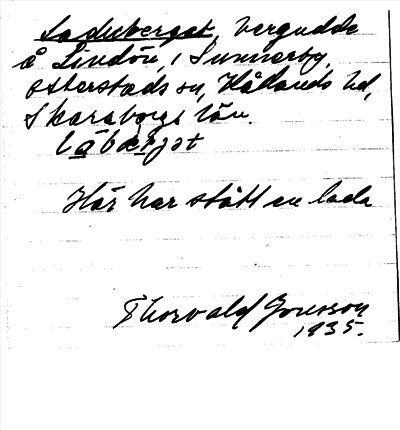 Laduberget, bergudde
å Lindön, i Sunnersby,
Otterstads sn, Kållands hd,
Skaraborgs län.
lȧbærjet
Här har stått en lada
Thorvald Jonsson
1935.